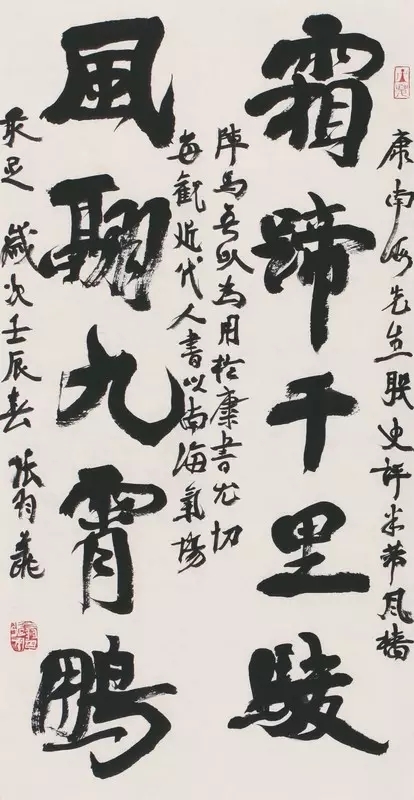 康南海先生联史評米芾風檣
霜蹄千里駿
陣馬吾以為用於康書尤切
每觀近代人書以南海氣場
風翮九霄鵬
最足 歲次壬辰春 張羽